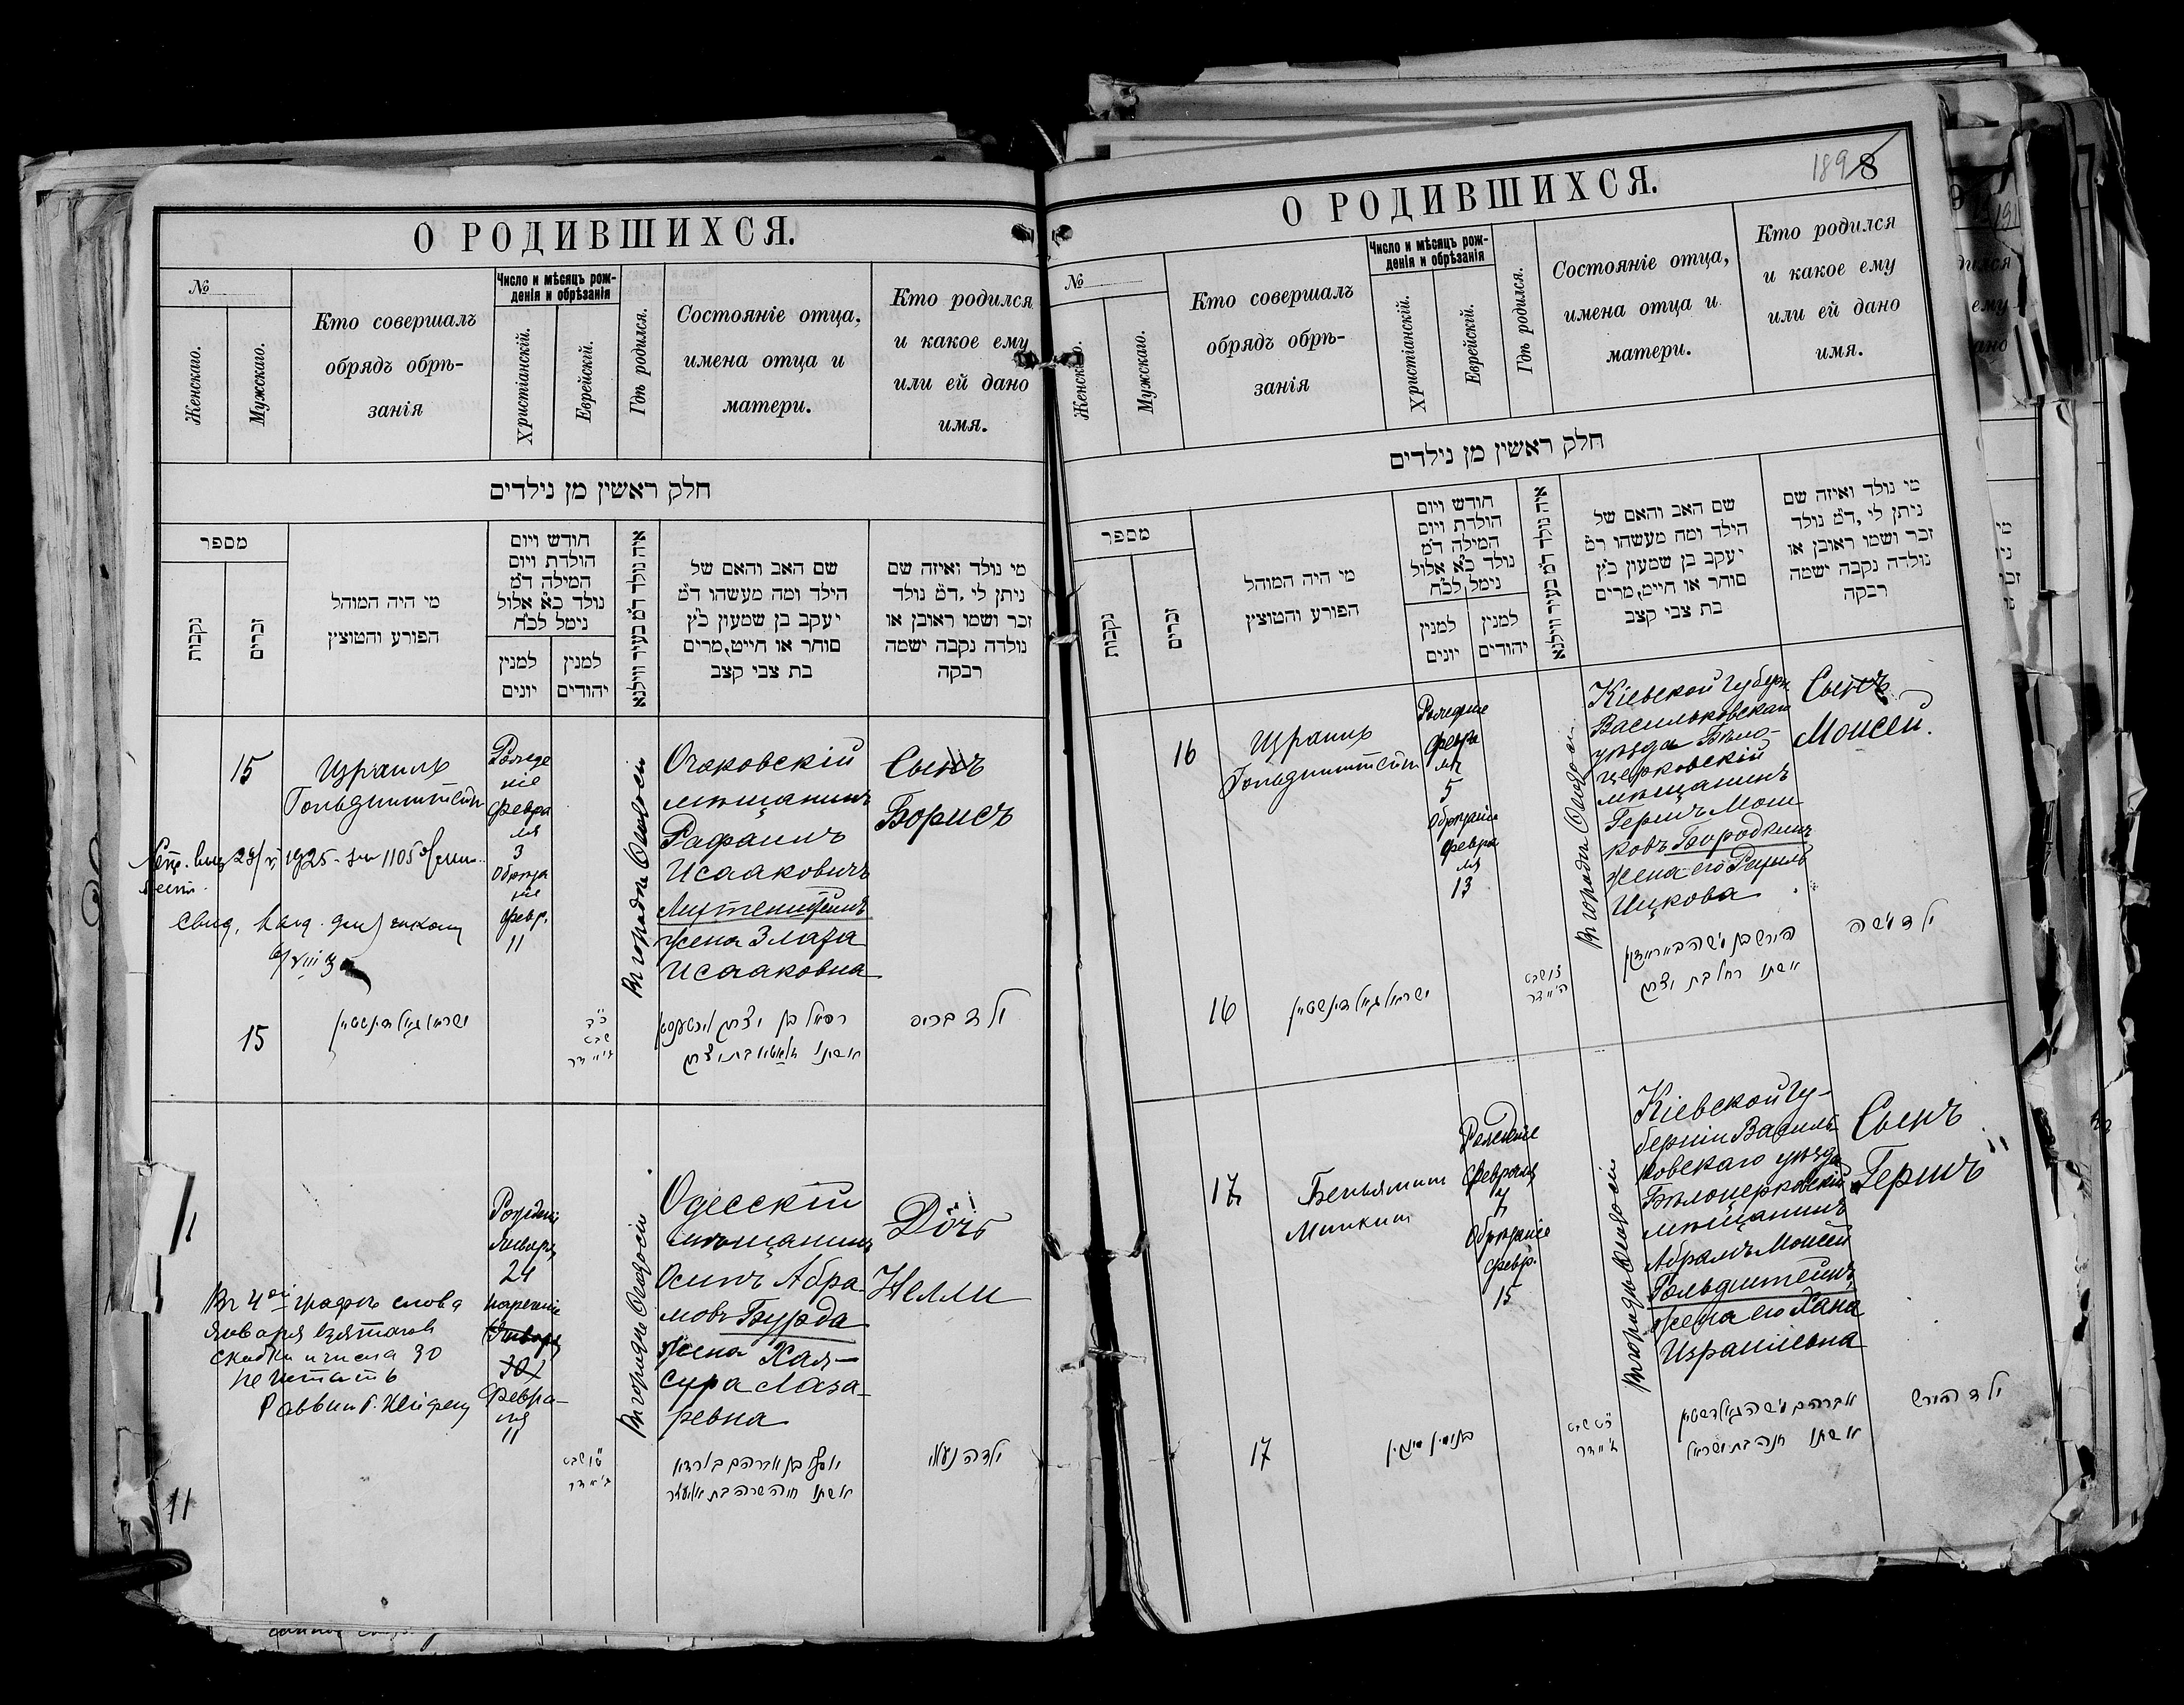 О РОДИВШИХСЯ.
№
Женскаго.
Мужскаго.
Кто совершалъ
обрядъ обрѣ-
занія
Число и мѣсяцъ рож-
денія и обрѣзанія
Христіанскій.
Еврейскій.
Гдѣ родился.
Состояніе отца,
имена отца и
матери.
Кто родился
и какое ему
или ей дано
имя.
חלק ראשין מן נילדים
מספר
נקבות
זכרים
מי היה המוהל
הפורע והמוצץ
חודש ויום
הולדת ויום
המילה ד״מ
נולד כ״א אלול
נימל לכ״ח
למנין
יונים
למנין
יהודים
איה נולד ד״מ בעיר ווילנא
שם האב והאם של
הילד ומה מעשהו ד״מ
יעקב בן שמעון כ״ץ
סוחר או חייט, מרים
בת צבי קצב
מי נולד ואיזה שם
ניתן לי, ד״מ נולד
זכר ושמו ראובן או
נולדה נקבה ישמה
רבקה
15
Израиль
Гольдштейн
Рожде
ніе
Февра
ля
3
Обрѣза
ніе
Февр.
11
Въ городѣ Ѳеодосіи
Очаковскій
мѣщанинъ
Рафаилъ
Исааковичъ
жена Злата
Исааковна
Сынъ
Борисъ
15
כ״ב
שבט
ילד בריס
11
Рожденіе
Января
24
нареченіе
Января
30
Февра-
ля
11
Въ городѣ Ѳеодосіи
Одесскій
мѣщанинъ
Осипъ Абра-
мовъ Бурда
жена Хая-
Сура Лаза-
ревна
Дочь
Нелли
Въ 4ой графѣ слова
Января взятаго въ
скобки и числа 30
не читать
Раввин
11
יוסף בן אברהם בורדא
אשתו חיה שרה בת אליעזר
ילדה נעלי
О РОДИВШИХСЯ.
189 8
№
Женскаго.
Мужскаго.
Кто совершалъ
обрядъ обрѣ-
занія
Число и мѣсяцъ рож-
денія и обрѣзанія
Христіанскій.
Еврейскій.
Гдѣ родился.
Состояніе отца,
имена отца и
матери.
Кто родился
и какое ему
или ей дано
имя.
חלק ראשין מן נילדים
מספר
נקבות
זכרים
מי היה המוהל
הפורע והמוצץ
חודש ויום
הולדת ויום
המילה ד״מ
נולד כ״א אלול
נימל לכ״ח
למנין
יונים
למנין
יהודים
איה נולד ד״מ בעיר ווילנא
שם האב והאם של
הילד ומה מעשהו ד״מ
יעקב בן שמעון כ״ץ
סוחר או חייט, מרים
בת צבי קצב
מי נולד ואיזה שם
ניתן לי, ד״מ נולד
זכר ושמו ראובן או
נולדה נקבה ישמה
רבקה
16
Израиль
Гольдштейн
Рожденіе
Февра
ля
5
Обрѣзаніе
Февра
ля
13
Въ городѣ Ѳеодосіи
Кіевской губерн.
Васильковскаго
уѣзда Бѣло-
церковскій
мѣщанинъ
Гершъ Мош-
ковъ Бородкинъ
жена его Рахиль
Ицкова
Сынъ
Моисей.
16
אשתו רחל בת יצחק
ילד משה
17
Беньямин
Минкин
Рожденіе
Февраля
7
Обрѣзаніе
Февр.
15
Въ городѣ Ѳеодосіи
Кіевской Гу-
берніи Василь-
ковскаго уѣзда
Бѣлоцерковскій
мѣщанинъ
Абрамъ Моисей
Гольдштейнъ
жена его Хана
Израилевна
Сынъ
Гершъ
17
אברהם משה גולדשטיין
אשתו חנה בת ישראל
ילד הירש